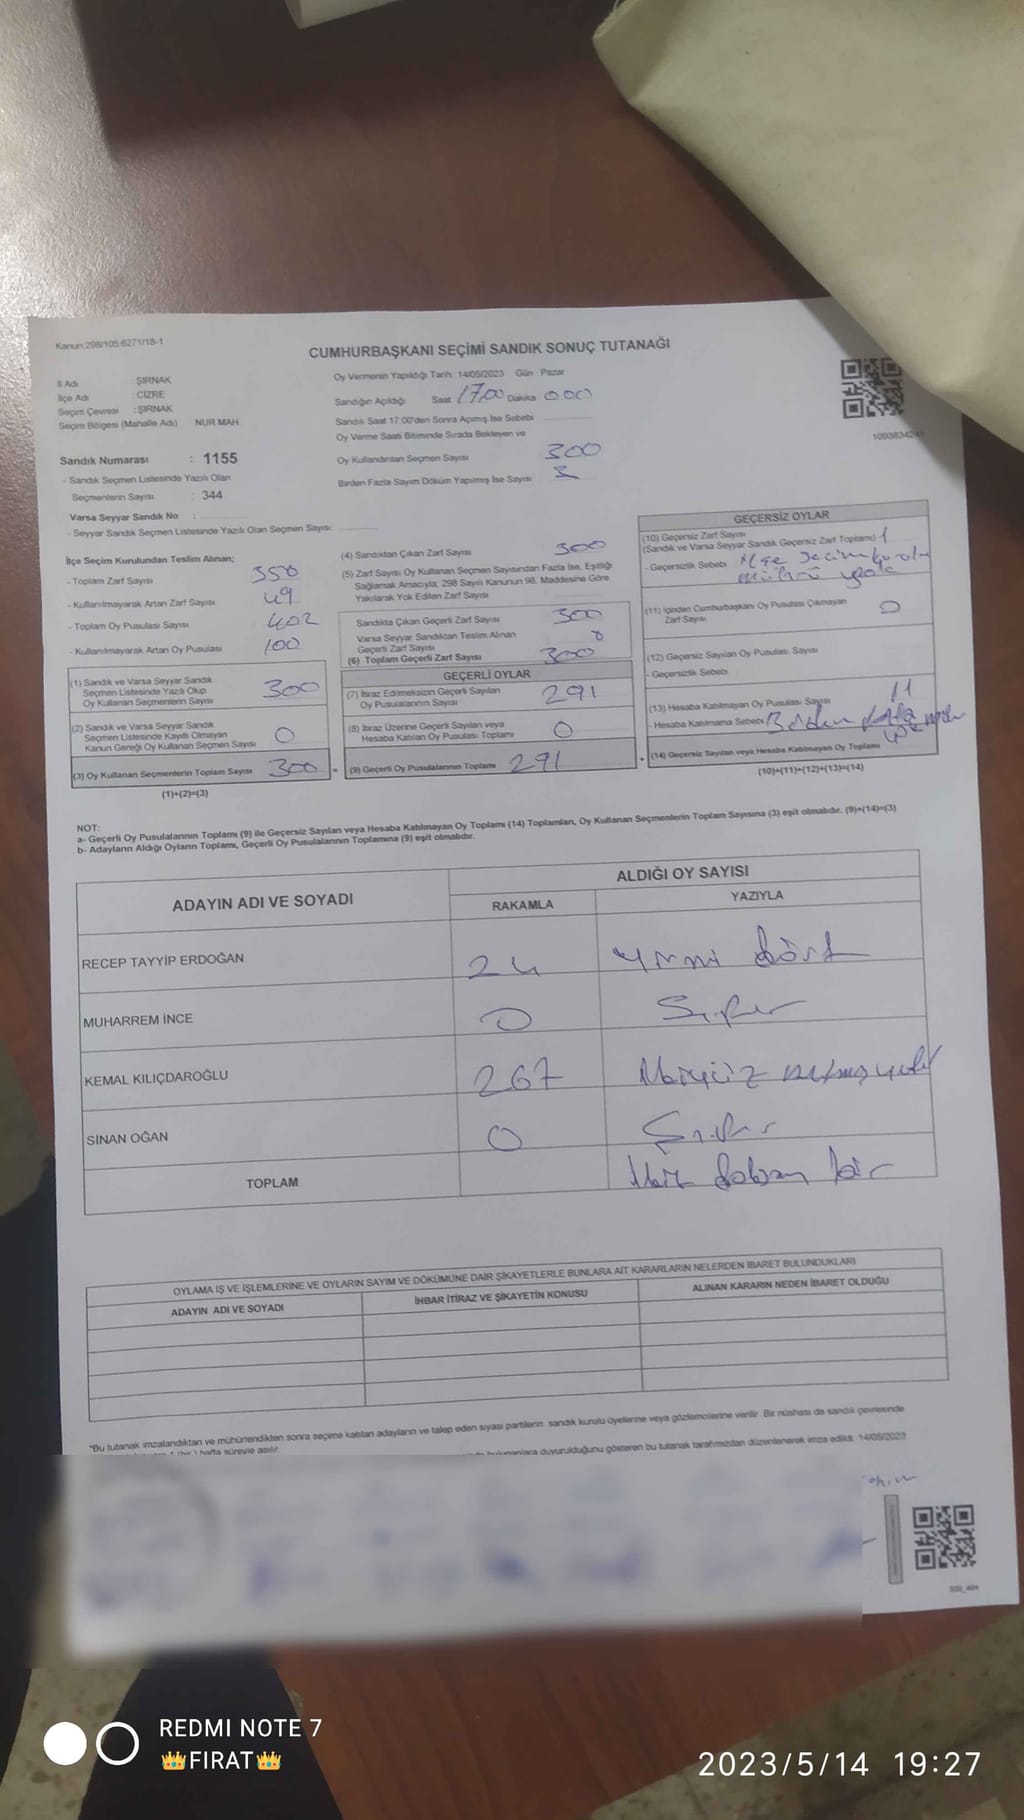 Kanun:298/105,6271/18-1
CUMHURBAŞKANI SEÇİMİ SANDIK SONUÇ TUTANAĞI
İl Adı ŞIRNAK
İlçe Adı : CİZRE
Seçim Çevresi : ŞIRNAK
Seçim Bölgesi (Mahalle Adı) NUR MAH.
Sandık Numarası : 1155
- Sandık Seçmen Listesinde Yazılı Olan
Seçmenlerin Sayısı : 344
Varsa Seyyar Sandık No :
- Seyyar Sandık Seçmen Listesinde Yazılı Olan Seçmen Sayısı:
Oy Vermenin Yapıldığı Tarih :14/05/2023 Gün : Pazar
Sandığın Açıldığı Saat 17.00 Dakika 000
Sandık Saat 17:00'den Sonra Açımış İse Sebebi
Oy Verme Saati Bitiminde Sırada Bekleyen ve
Oy Kullandırılan Seçmen Sayısı 300
Birden Fazla Sayım Döküm Yapılmış İse Sayısı
İlçe Seçim Kurulundan Teslim Alınan;
- Toplam Zarf Sayısı 350
- Kullanılmayarak Artan Zarf Sayısı 49
- Toplam Oy Pusulası Sayısı 402
- Kullanılmayarak Artan Oy Pusulası 100
(1) Sandık ve Varsa Seyyar Sandık
Seçmen Listesinde Yazılı Olup
Oy Kullanan Seçmenlerin Sayısı 300
(2) Sandık ve Varsa Seyyar Sandık
Seçmen Listesinde Kayıtlı Olmayan
Kanun Gereği Oy Kullanan Seçmen Sayısı 0
(3) Oy Kullanan Seçmenlerin Toplam Sayısı 300
(1)+(2)=(3)
(4) Sandıktan Çıkan Zarf Sayısı 300
(5) Zarf Sayısı Oy Kullanan Seçmen Sayısından Fazla İse, Eşitliği
Sağlamak Amacıyla, 298 Sayılı Kanunun 98. Maddesine Göre
Yakılarak Yok Edilen Zarf Sayısı
Sandıkta Çıkan Geçerli Zarf Sayısı 300
Varsa Seyyar Sandıktan Teslim Alınan
Geçerli Zarf Sayısı 0
(6) Toplam Geçerli Zarf Sayısı 300
GEÇERLİ OYLAR
(7) İtiraz Edilmeksizin Geçerli Sayılan
Oy Pusulalarının Sayısı 291
(8) İtiraz Üzerine Geçerli Sayılan veya
Hesaba Katılan Oy Pusulası Toplamı 0
= (9) Geçerli Oy Pusulalarının Toplamı 291
+
GEÇERSİZ OYLAR
(10) Geçersiz Zarf Sayısı
(Sandık ve Varsa Seyyar Sandık Geçersiz Zarf Toplamı) 1
- Geçersizlik Sebebi İlçe seçim kurulu
mührü yok
(11) İçinden Cumhurbaşkanı Oy Pusulası Çıkmayan
Zarf Sayısı 0
(12) Geçersiz Sayılan Oy Pusulası Sayısı
- Geçersizlik Sebebi
(13) Hesaba Katılmayan Oy Pusulası Sayısı 11
- Hesaba Katılmama Sebebi
(14) Geçersiz Sayılan veya Hesaba Katılmayan Oy Toplamı
(10)+(11)+(12)+(13)=(14)
NOT:
a- Geçerli Oy Pusulalarının Toplamı (9) ile Geçersiz Sayılan veya Hesaba Katılmayan Oy Toplamı (14) Toplamları, Oy Kullanan Seçmenlerin Toplam Sayısına (3) eşit olmalıdır. (9)+(14)=(3)
b- Adayların Aldığı Oyların Toplamı, Geçerli Oy Pusulalarının Toplamına (9) eşit olmalıdır.
ADAYIN ADI VE SOYADI
ALDIĞI OY SAYISI
RAKAMLA YAZIYLA
RECEP TAYYİP ERDOĞAN 24 Yirmi dört
MUHARREM İNCE 0 Sıfır
KEMAL KILIÇDAROĞLU 267 İkiyüz altmış yedi
SİNAN OĞAN 0 Sıfır
TOPLAM
OYLAMA İŞ VE İŞLEMLERİNE VE OYLARIN SAYIM VE DÖKÜMÜNE DAİR ŞİKAYETLERLE BUNLARA AİT KARARLARIN NELERDEN İBARET BULUNDUKLARI
ADAYIN ADI VE SOYADI İHBAR İTİRAZ VE ŞİKAYETİN KONUSU ALINAN KARARIN NEDEN İBARET OLDUĞU
*Bu tutanak imzalandıktan ve mühürlendikten sonra seçime katılan adayların ve talep eden siyasi partilerin sandık kurulu üyelerine veya gözlemcilerine verilir. Bir nüshası da sandık çevresinde
hafta süreyle asılır.
bulunanlara duyurulduğunu gösteren bu tutanak tarafımızdan düzenlenerek imza edildi. 14/05/2023
REDMI NOTE 7
👑FIRAT👑
2023/5/14 19:27